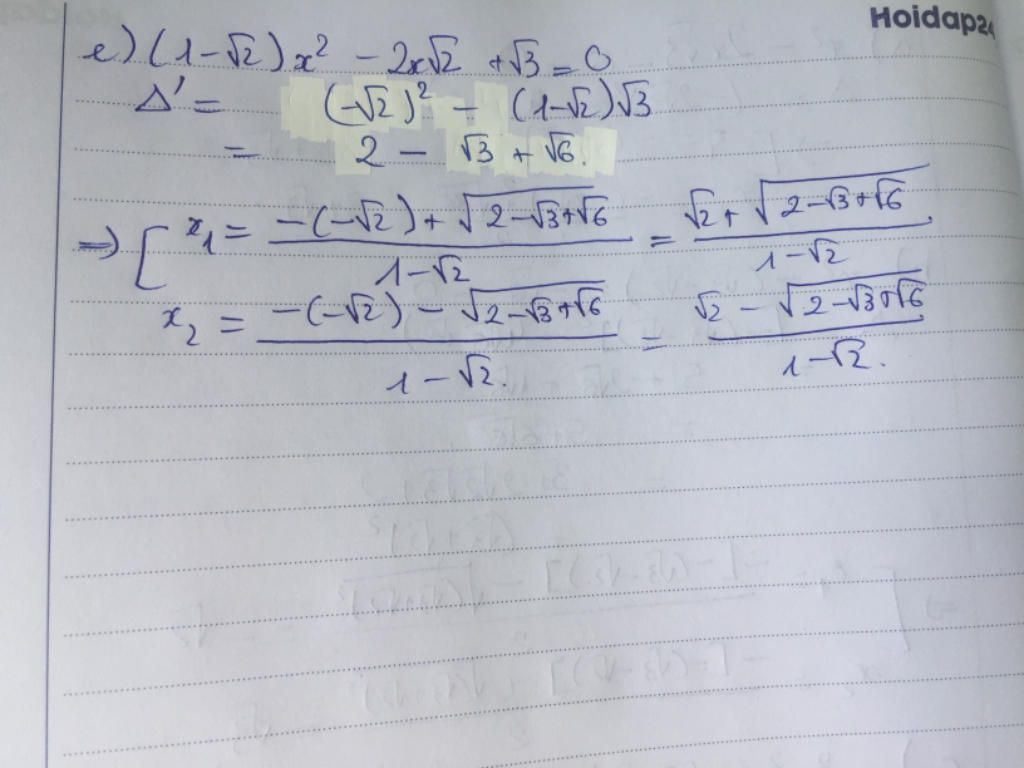 Hoidap24
e) (1-√2)x² - 2x√2 + √3 = 0
Δ' = (-√2)² - (1-√2)√3
= 2 - √3 + √6.
=> [ x₁ = (-(-√2) + √(2-√3+√6))/(1-√2) = (√2 + √(2-√3+√6))/(1-√2)
x₂ = (-(-√2) - √(2-√3+√6))/(1-√2). = (√2 - √(2-√3+√6))/(1-√2).